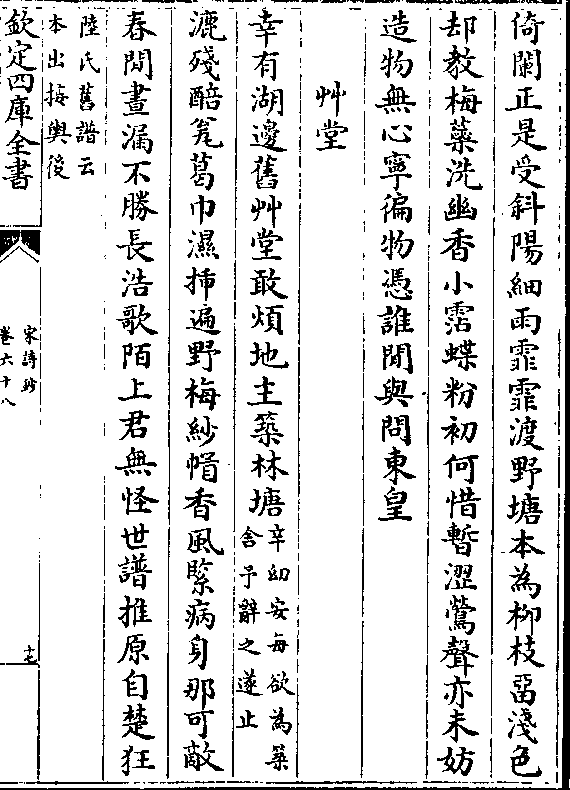 倚闌正是受斜陽細雨霏霏渡野塘本為柳枝留淺色
却教梅蘂洗幽香小霑蝶粉初何惜暫澀鶯聲亦未妨
造物無心寧徧物憑誰聞與問東皇
艸堂
幸有湖邊舊艸堂敢煩地主築林塘辛幼安每欲為築
舍予辭之遂止
漉殘醅瓮葛巾濕揷遍野梅紗㡌香風緊病身那可敵
春閒晝漏不勝長浩歌陌上君無怪世譜推原自楚狂
陸氏舊譜云
本出接輿後
欽定四庫全書
宋詩鈔
卷六十八
十七